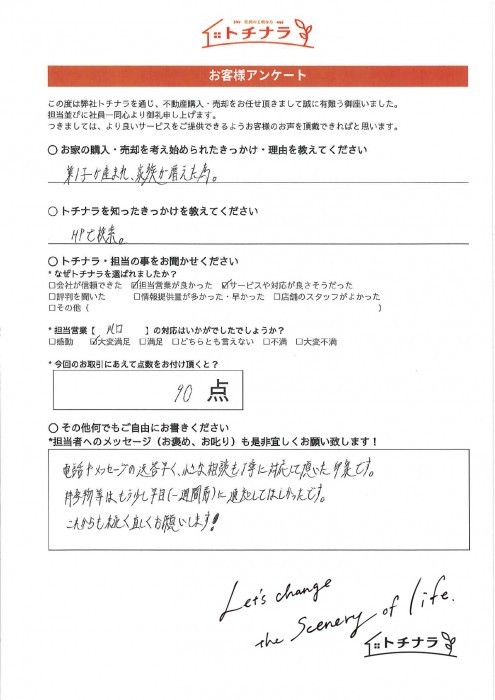 トチナラ
お客様アンケート
この度は弊社トチナラを通じ、不動産購入・売却をお任せ頂きまして誠に有難う御座いました。
担当並びに社員一同心より御礼申し上げます。
つきましては、より良いサービスをご提供できるようお客様のお声を頂戴できればと思います。
〇 お家の購入・売却を考え始められたきっかけ・理由を教えてください
第1子が産まれ、家族が増えた為。
〇 トチナラを知ったきっかけを教えてください
HPで検索。
〇 トチナラ・担当の事をお聞かせください
* なぜトチナラを選ばれましたか？
□会社が信頼できた ☑担当営業が良かった ☑サービスや対応が良さそうだった
□評判を聞いた □情報提供量が多かった・早かった □店舗のスタッフがよかった
□その他（ ）
* 担当営業【 川口 】の対応はいかがでしたでしょうか？
□感動 ☑大変満足 □満足 □どちらとも言えない □不満 □大変不満
* 今回のお取引にあえて点数をお付け頂くと？
90 点
〇 その他何でもご自由にお書きください
*担当者へのメッセージ（お褒め、お叱り）も是非宜しくお願い致します！
電話やメッセージの返答早く、小さな相談も丁寧に対応して頂いた印象です。
持参物等は、もう少し早目(一週間前)に通知してほしかったです。
これからも末永く宜しくお願いします!
Let's change
the Scenery of life.
トチナラ